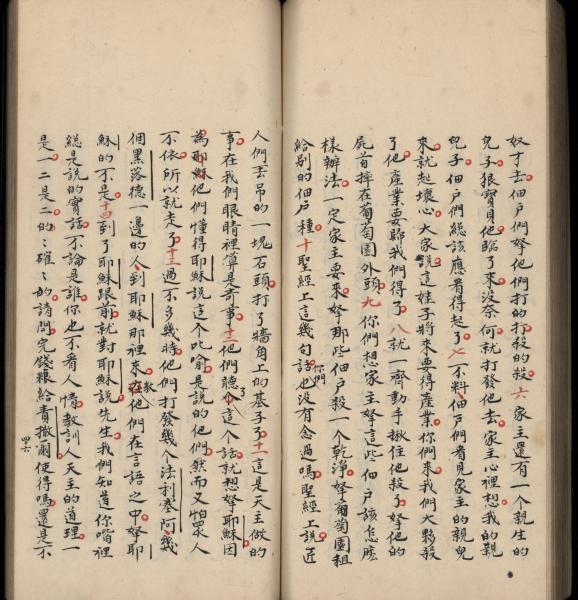 奴才去佃戶們拏他們打的打殺的殺六家主還有一個親生的
兒子狠寶貝他臨了來没奈何就打發他去家主心裡想我的親
兒子佃戶們總該應看得起了七不料佃戶們看見家主的親兒
來就起壞心大家説這娃子將來要得產業你們來我們大夥殺
了他產業要歸我們得了八就一齊動手揪住他殺了拏他的
屍首摔在葡萄園外頭九你們想家主拏這些佃戶該怎庅
樣辦法一定家主要來拏那些佃戶殺一个乾净拏葡萄園租
給别的佃戶種十聖經上這幾句話你們也没有念過嗎聖經上説匠
人們丢吊的一塊石頭打了牆角上的基子了十一這是天主做的
事在我們眼睛裡算是奇事十二他們聽了這个話就想拏耶穌因
為耶穌他們懂得耶穌説這个比喻是説的他們然而又怕眾人
不依所以就走了十三過不多幾時他們打發幾个法利塞阿幾
個黑落德一邊的人到耶穌那裡來教他們在言語之中拏耶
穌的不是十四到了耶穌跟前就對耶穌説先生我們知道你嘴裡
總是説的實話不論是誰你也不看人情教訓人天主的道理一
是一二是二的的確確的請問完錢糧給責撒爾使得嗎還是不
四六